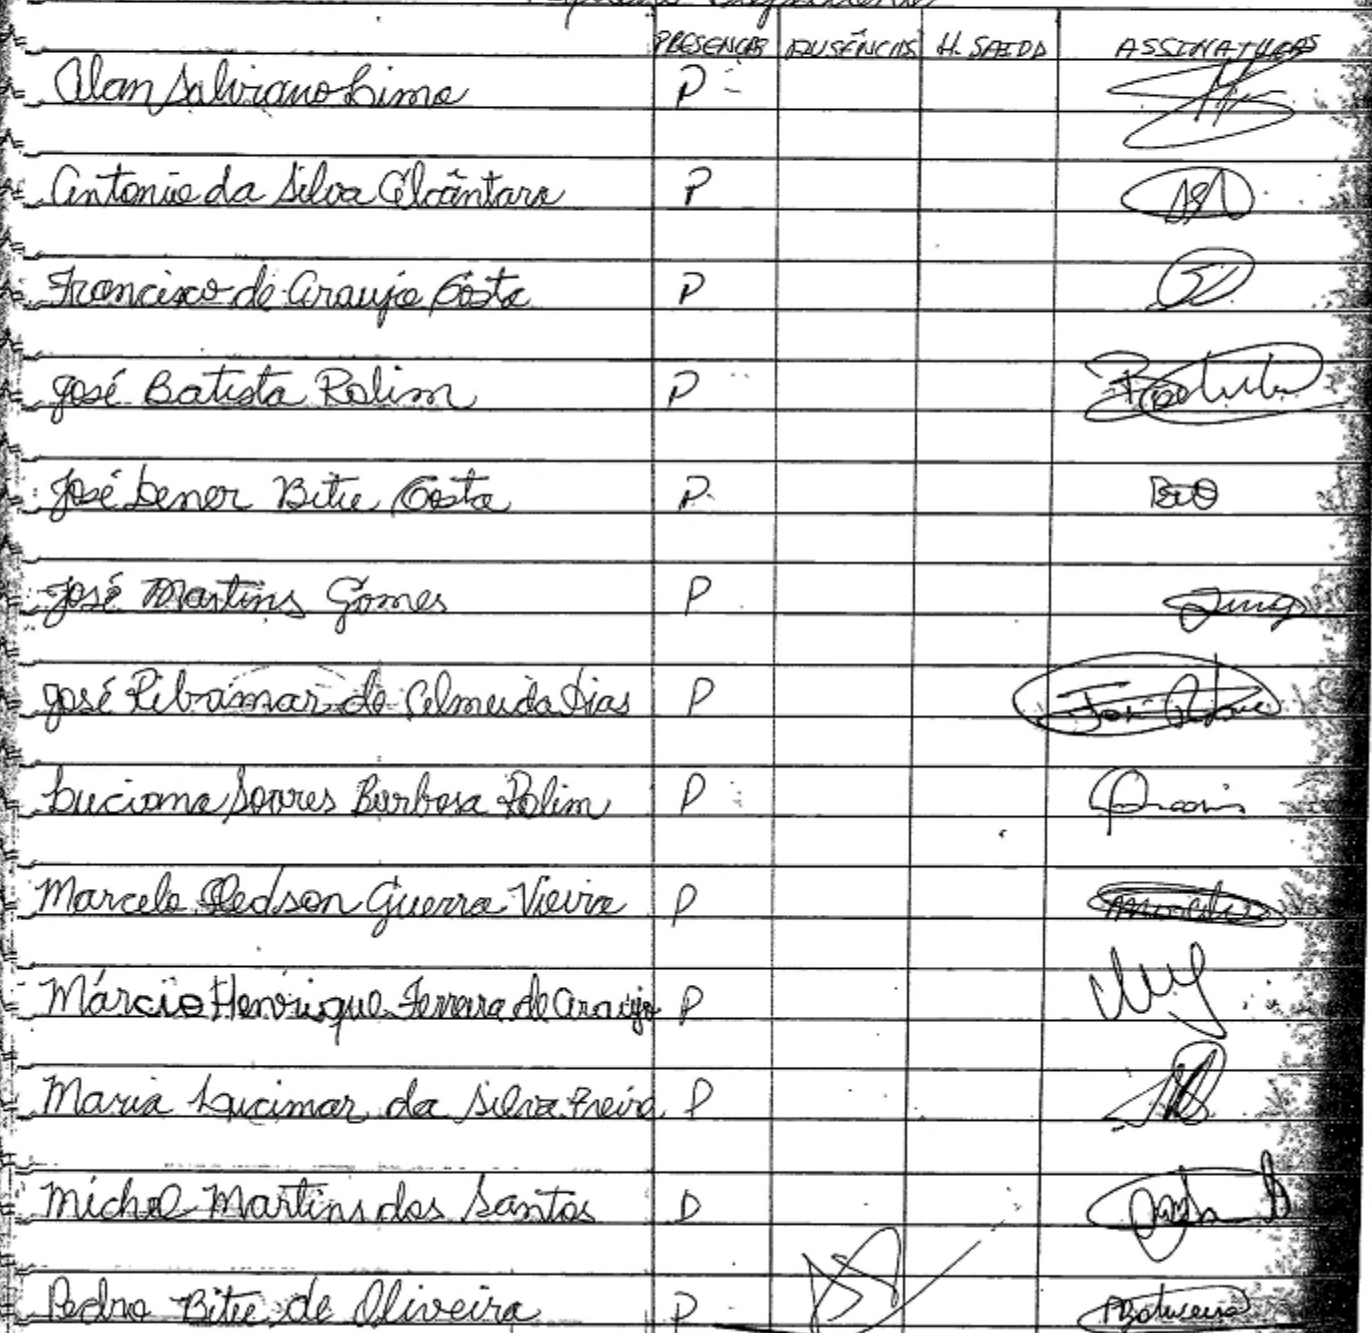 PRESENÇAS AUSÊNCIAS H. SAIDA ASSINATURAS
Alan Salviano Lima P
Antonio da Silva Alcântara P
Francisco de Araujo Costa P
José Batista Rolim P Batista
José Lener Bitu Costa P
José Martins Gomes P
José Ribamar de Almeida Dias P José
Luciana Soares Barbosa Rolim P
Marcelo Gledson Guerra Vieira P
Márcio Henrique Ferreira de Araujo P
Maria Lucimar da Silva Freire P
Michel Martins dos Santos P
Pedro Bitu de Oliveira P